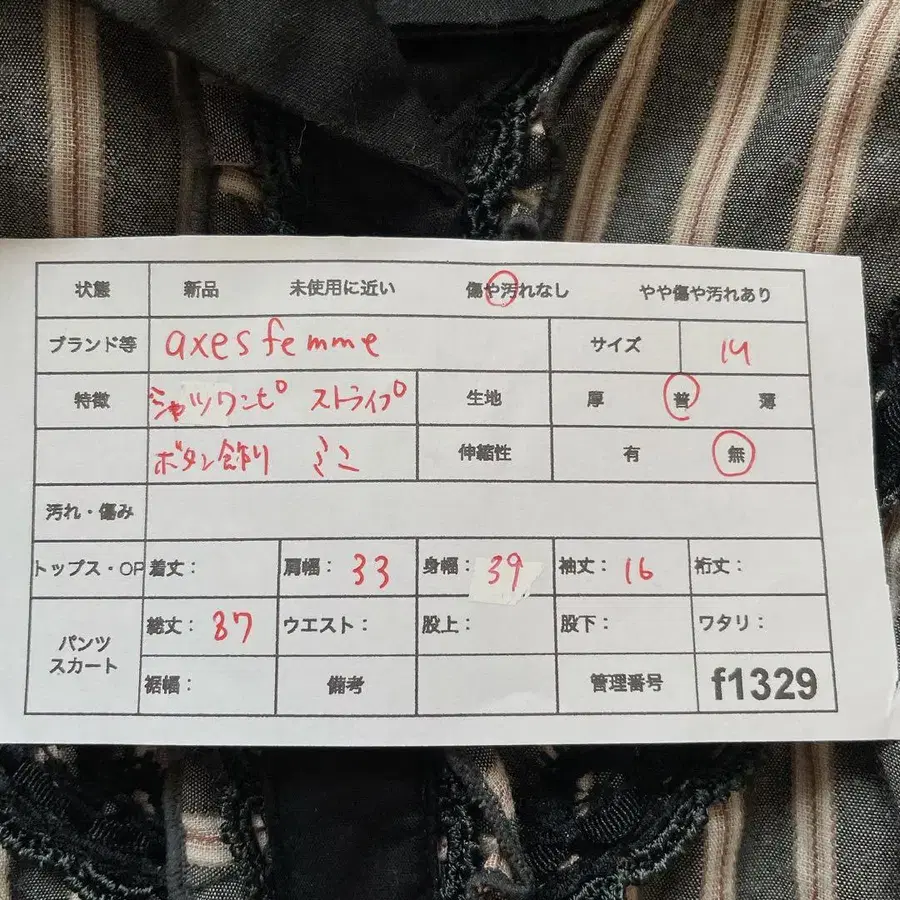 状態 新品 未使用に近い 傷や汚れなし やや傷や汚れあり
ブランド等 axes femme サイズ
特徴 シャツワンピ ストライプ 生地 厚 普 薄
ボタン飾り ミニ 伸縮性 有 無
汚れ・傷み
トップス・OP 着丈: 肩幅: 33 身幅: 39 袖丈: 16 裄丈:
パンツ スカート 総丈: 87 ウエスト: 股上: 股下: ワタリ:
裾幅: 備考 管理番号 f1329